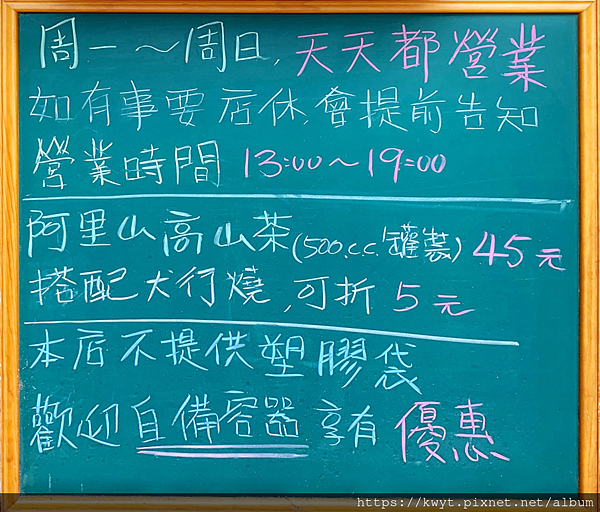 周一～周日,天天都營業
如有事要店休,會提前告知
營業時間 13:00～19:00
阿里山高山茶(500.c.c.罐裝) 45元
搭配犬行燒,可折 5元
本店不提供塑膠袋
歡迎自備容器 享有 優惠
https://kwyt.pixnet.net/album